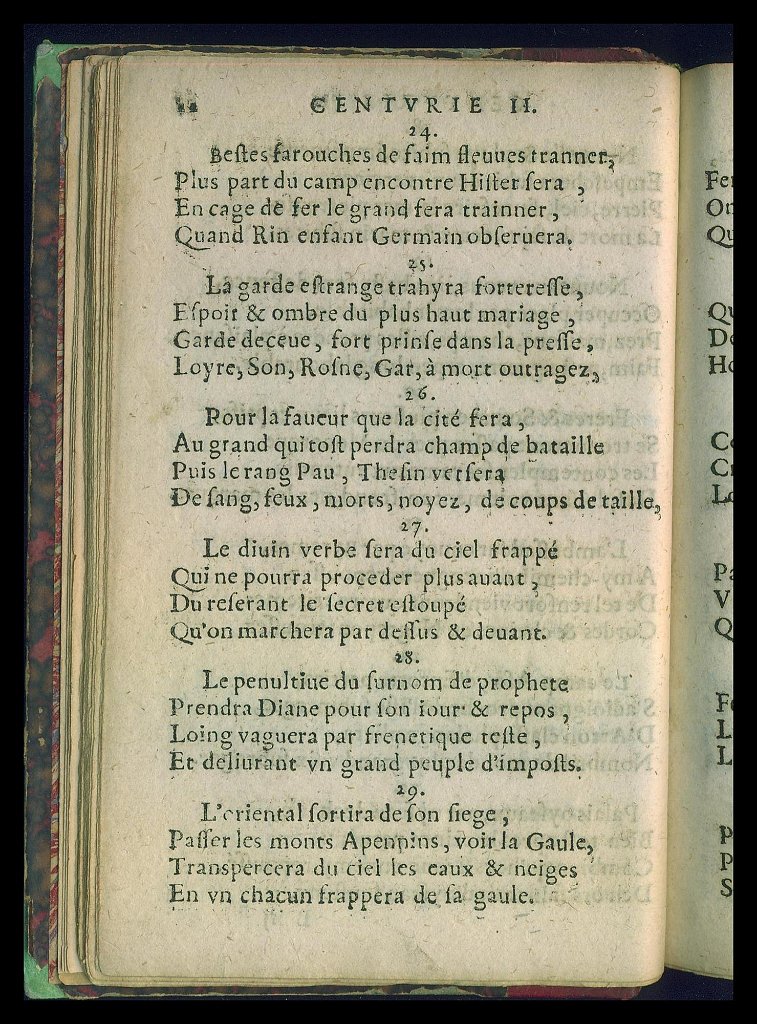 CENTVRIE II.
24.
Beſtes farouches de faim fleuues tranner,
Plus part du camp encontre Hiſter ſera ,
En cage de fer le grand fera trainner ,
Quand Rin enfant Germain obſeruera.
25.
La garde eſtrange trahyra fortereſſe ,
Eſpoir & ombre du plus haut mariage ,
Garde deceue , fort prinſe dans la preſſe ,
Loyre, Son, Roſne, Gar, à mort outragez,
26.
Pour la faueur que la cité fera ,
Au grand qui toſt perdra champ de bataille
Puis le rang Pau , Theſin verſera
De ſang, feux , morts, noyez, de coups de taille,
27.
Le diuin verbe ſera du ciel frappé
Qui ne pourra proceder plus auant ,
Du reſerant le ſecret eſtoupé
Qu'on marchera par deſſus & deuant.
28.
Le penultiue du ſurnom de prophete
Prendra Diane pour ſon iour & repos ,
Loing vaguera par frenetique teſte ,
Et deliurant vn grand peuple d'impoſts.
29.
L'oriental ſortira de ſon ſiege ,
Paſſer les monts Apennins , voir la Gaule,
Transpercera du ciel les eaux & neiges
En vn chacun frappera de ſa gaule.